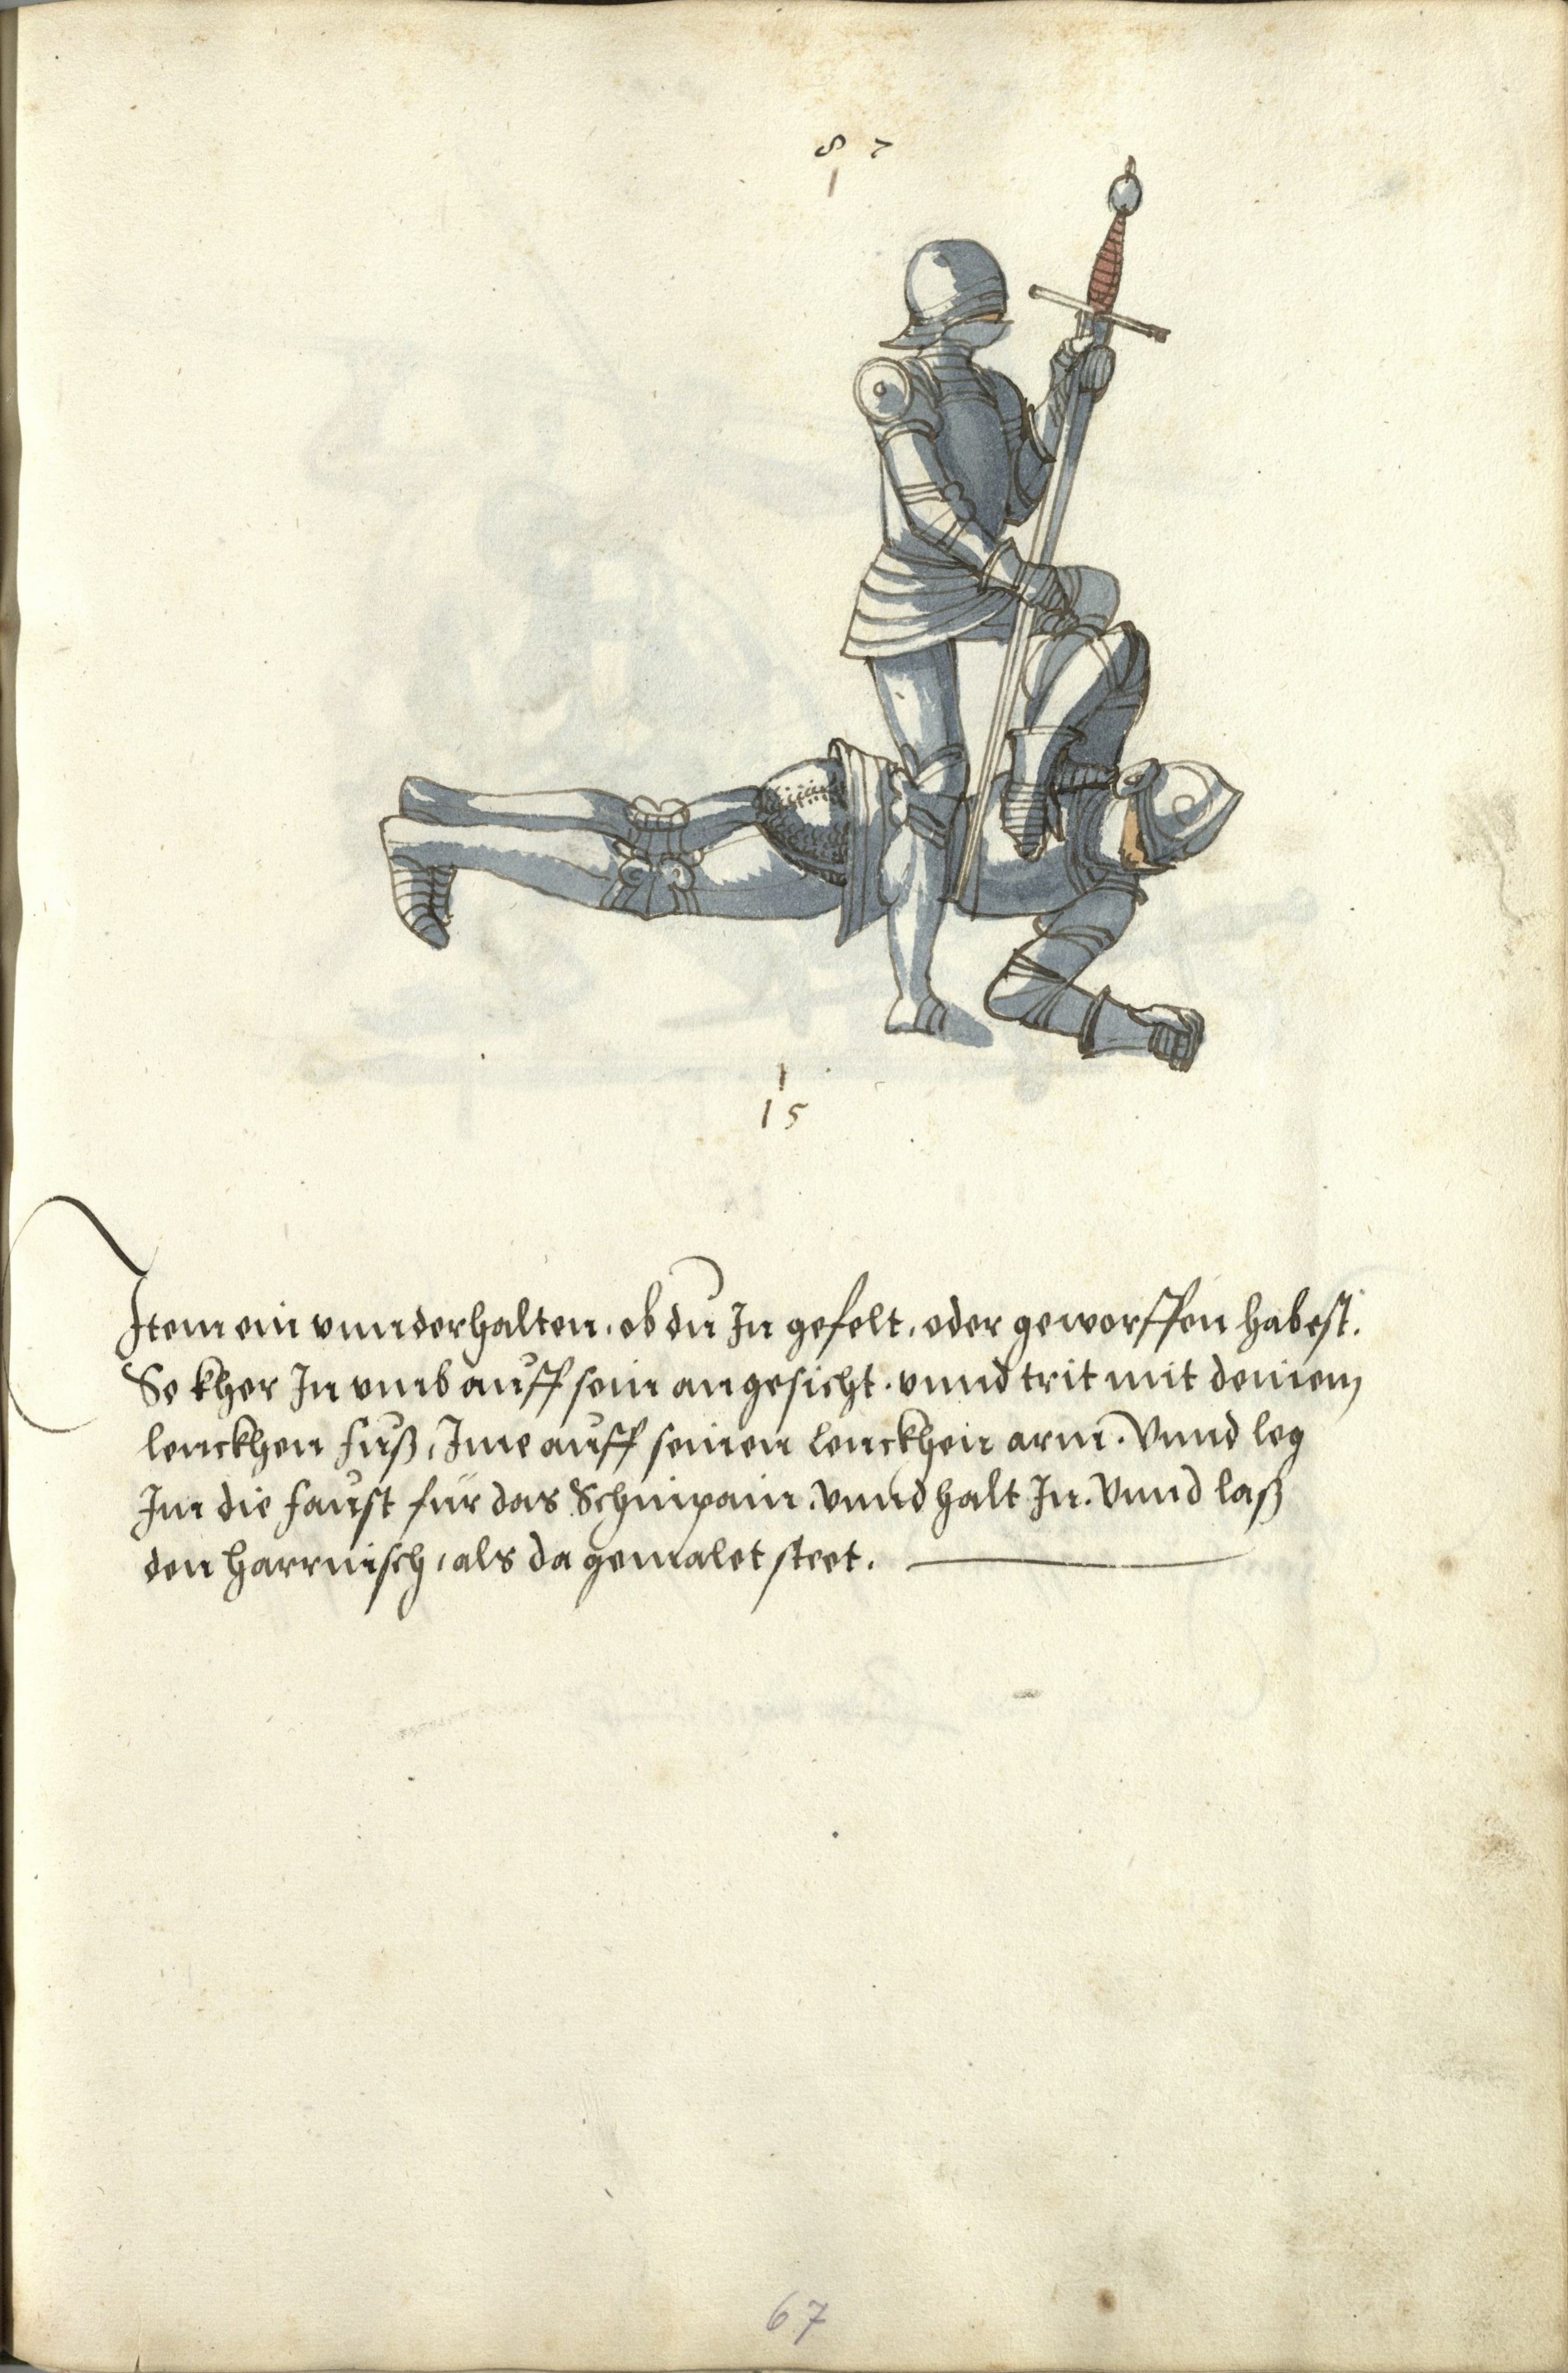 8 7
1
1
15
Item ein vnnderhalten, ob du In gefelt, oder geworffen habest.
So kher In vmb auff sein angesicht. vnnd trit mit deinem
lenckhen fuß, Ime auff seinen lenckhen arm. Vnnd leg
Im die faust für das Schinpain. vnnd halt In. Vnnd laß
den harrnisch, als da gemalet steet.
67